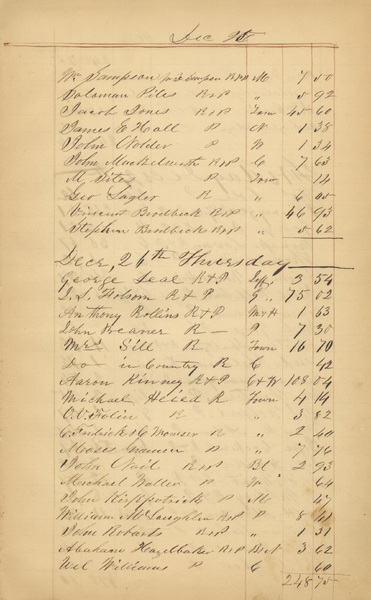 Dec 25
Wm Sampson R&P M 7 50
Soloman Piles R&P " 5 92
Jacob Jones R&P Town 45 60
James E Hall P N 1 38
John Holder P W 1 34
John Muckelworth R&P C 7 63
M. Sites P Town 14
Geo Sagler R " 6 00
Vincent Brodbeck R&P " 46 93
Stephen Brodbeck R&P " 5 62
Dece, 26th Thursday
George Seal R&P Jeff 3 54
J. S. Folsom R&P G 75 02
Anthony Rollins R&P M&H 1 63
John Preaner R — P 7 30
Mrs Sill R Town 16 70
Do — in Country R C 42
Aaron Kinney R&P C&W 108 04
Michael R Town 4 14
O. V. R " 3 82
R " 2 40
Moses P " 7 76
John R&P Bl 2 93
Michael Waller P W 64
John Kirkpatrick P M 47
William McLaughlin R&P P 8
John Robarts R&P " 1 31
Abaham Hazelbaker R&P 3 62
Wel Williams P C 60
248 75